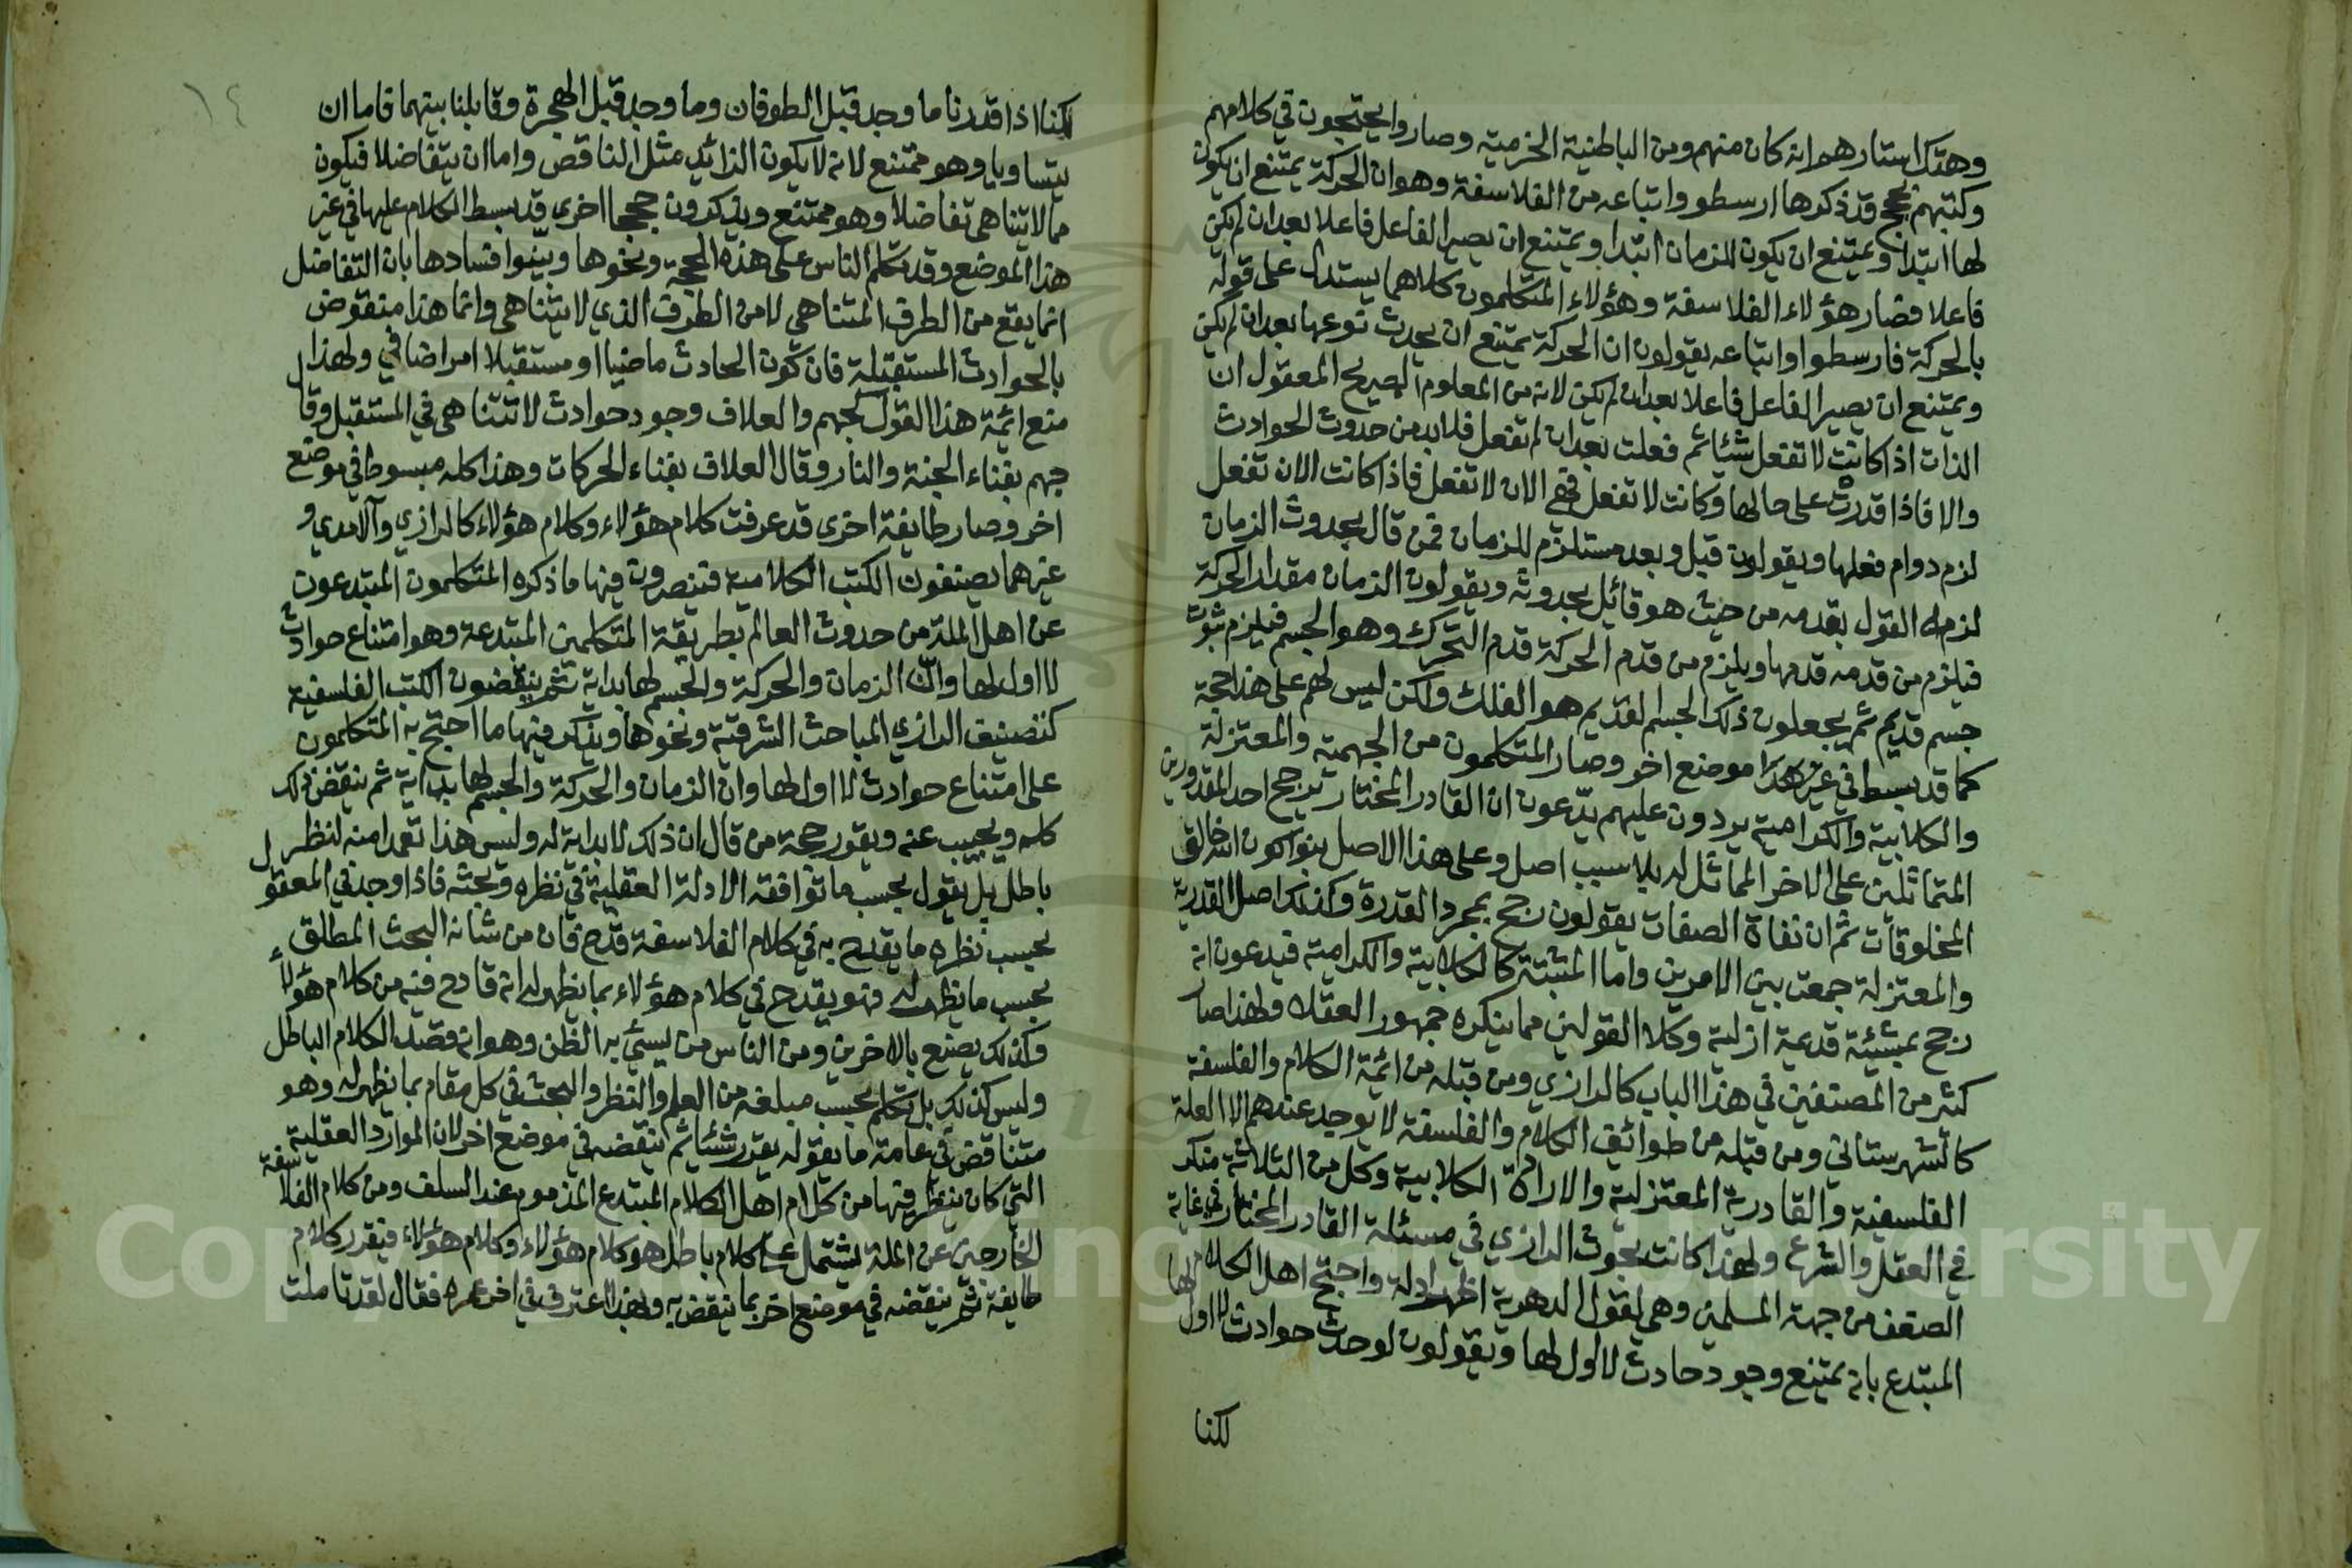 وهتك استارهم انه كان منهم ومن الباطنية الخرمية وصاروا يحتجون في كلامهم
وكتبهم بحجج قد ذكرها ارسطو واتباعه من الفلاسفة وهو ان الحركة يمتنع ان يكون
لها ابتدا ويمتنع ان يكون للزمان ابتدا ويمتنع ان يصير الفاعل فاعلا بعد ان لم يكن
فاعلا فصار هؤلاء الفلاسفة وهؤلاء المتكلمون كلاهما يستدل على قوله
بالحركة فارسطوا واتباعه يقولون ان الحركة يمتنع ان يحدث نوعها بعد ان لم يكن
ويمتنع ان يصير الفاعل فاعلا بعد ان لم يكن لانه من المعلوم الصريح المعقول ان
الذات اذا كانت لا تفعل شئا ثم فعلت بعد ان لم تفعل فلا بد من حدوث الحوادث
والا فاذا قدرت على حالها وكانت لا تفعل فهي الان لا تفعل فاذا كانت الان تفعل
لزم دوام فعلها ويقولون قبل وبعد مستلزم للزمان فمن قال بحدوث الزمان
لزمه القول بقدمه من حيث هو قائل بحدوثه ويقولون الزمان مقدار الحركة
فيلزم من قدمه قدمها ويلزم من قدم الحركة قدم التحرك وهو الجسم فيلزم ثبوت
جسم قديم ثم يجعلون ذلك الجسم لقديم هو الفلك ولكن ليس لهم على هذا حجة
كما قد بسط في غير هذا موضع اخر وصار المتكلمون من الجهمية والمعتزلة
والكلابية والكرامية يردون عليهم يدّعون ان القادر المختار ترجح احد المقدورين
المتماثلين على الاخر المماثل له بلا سبب اصل وعلى هذا الاصل بنوا كون الله خالق
المخلوقات ثم ان نفاة الصفات يقولون رجح بمجرد القدرة وكذلك اصل القدرية
والمعتزلة جمعت بين الامرين واما المثبتة كالكلابية والكرامية فيدعون انه
رجح بمشيئة قديمة ازلية وكلا القولين مما ينكره جمهور العقلاء ولهذا صار
كثير من المصنفين في هذا الباب كالرازي ومن قبله من ائمة الكلام والفلسفة
كالشهرستاني ومن قبله من طوائف الكلام والفلسفة لا يوجد عندهم الا العلة
الفلسفية والقادرية المعتزلية والارادة الكلابية وكل من الثلاثة منكر
في العقل والشرع ولهذا كانت بحوث الرازي في مسئلة القادر المختار في غاية
الضعف من جهة المسلمين وهي لقول الدهرية اظهر ادلة واحتج اهل الكلام
المبتدع بانه يمتنع وجود حادث لا اول لها ويقولون لو حدث حوادث لا اول لها
لكنا
١٤
لكنا اذا قدرنا ما وجد قبل الطوفان وما وجد قبل الهجرة وقابلنا بينهما فاما ان
يتساويا وهو ممتنع لانه لا يكون الزائد مثل الناقص واما ان يتفاضلا فيكون
مما لا يتناهى تفاضلا وهو ممتنع ويذكرون حججا اخرى قد بسط الكلام عليها في غير
هذا الموضع وقد تكلم الناس على هذه الحجة ونحوها وبينوا فسادها بان التفاضل
انما يقع من الطرف المتناهي لا من الطرف الذي لا يتناهى وانما هذا منقوض
بالحوادث المستقبلة فان كون الحادث ماضيا او مستقبلا امر اضافي ولهذا
منع ائمة هذا القول كجهم والعلاف وجود حوادث لا تتناهى في المستقبل وقال
جهم بفناء الجنة والنار وقال العلاف بفناء الحركات وهذا كله مبسوط في موضع
اخر وصار طايفة اخرى قد عرفت كلام هؤلاء وكلام هؤلاء كالرازي والآمدي و
غيرهما يصنفون الكتب الكلامية فتنصرون فيها ما ذكره المتكلمون المبتدعون
عن اهل الملة من حدوث العالم بطريقة المتكلمين المبتدعة وهو امتناع حوادث
لا اول لها وان الزمان والحركة والجسم لها بداية ثم ينقضون الكتب الفلسفية
كتصنيف الرازي المباحث الشرقية ونحوها ويذكر فيها ما احتج به المتكلمون
على امتناع حوادث لا اول لها وان الزمان والحركة والجسم لها بداية ثم ينقض ذلك
كله ويجيب عنه ويقرر حجة من قال ان ذلك لا بداية له وليس هذا تعمدا منه لنظر
باطل بل يقول بحسب ما توافقه الادلة العقلية في نظره وبحثه فاذا وجد في المعقول
بحسب نظره ما يقدح به في كلام الفلاسفة قدح فان من شانه البحث المطلق
بحسب ما يظهر له فهو يقدح في كلام هؤلاء بما يظهر له انه قادح فيه من كلام هؤلاء
وكذلك يصنع بالاخرين ومن الناس من يسيء به الظن وهو انه قصد الكلام الباطل
وليس كذلك بل تكلم بحسب مبلغه من العلم والنظر والبحث في كل مقام بما يظهر له وهو
متناقض في عامة ما يقوله يقرر شئا ثم ينقضه في موضع اخر لان الموارد العقلية
التي كان ينظر فيها من كلام اهل الكلام المبتدع المذموم عند السلف ومن كلام الفلاسفة
الخارجين عن الملة يشتمل على كلام باطل هو كلام هؤلاء وكلام هؤلاء فيقرر كلام
طايفة ثم ينقضه في موضع اخر بما ينقض به ولهذا اعترف في اخر عمره فقال لقد تاملت